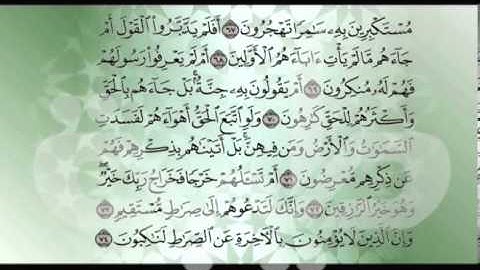 مُسْتَكْبِرِينَ بِهِۦ سَٰمِرًا تَهْجُرُونَ ٦٧ أَفَلَمْ يَدَّبَّرُوا۟ ٱلْقَوْلَ أَمْ
جَآءَهُم مَّا لَمْ يَأْتِ ءَابَآءَهُمُ ٱلْأَوَّلِينَ ٦٨ أَمْ لَمْ يَعْرِفُوا۟ رَسُولَهُمْ
فَهُمْ لَهُۥ مُنكِرُونَ ٦٩ أَمْ يَقُولُونَ بِهِۦ جِنَّةٌۢ ۚ بَلْ جَآءَهُم بِٱلْحَقِّ
وَأَكْثَرُهُمْ لِلْحَقِّ كَٰرِهُونَ ٧٠ وَلَوِ ٱتَّبَعَ ٱلْحَقُّ أَهْوَآءَهُمْ لَفَسَدَتِ
ٱلسَّمَٰوَٰتُ وَٱلْأَرْضُ وَمَن فِيهِنَّ ۚ بَلْ أَتَيْنَٰهُم بِذِكْرِهِمْ فَهُمْ
عَن ذِكْرِهِم مُّعْرِضُونَ ٧١ أَمْ تَسْـَٔلُهُمْ خَرْجًا فَخَرَاجُ رَبِّكَ خَيْرٌ ۖ
وَهُوَ خَيْرُ ٱلرَّٰزِقِينَ ٧٢ وَإِنَّكَ لَتَدْعُوهُمْ إِلَىٰ صِرَٰطٍ مُّسْتَقِيمٍ ٧٣
وَإِنَّ ٱلَّذِينَ لَا يُؤْمِنُونَ بِٱلْءَاخِرَةِ عَنِ ٱلصِّرَٰطِ لَنَٰكِبُونَ ٧٤